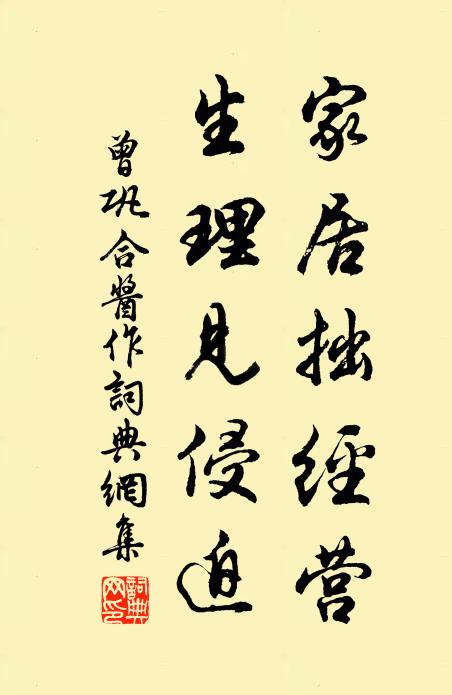 家居拙經营
生理見侵迫
曾巩合醬作詞典網集
詞典网印